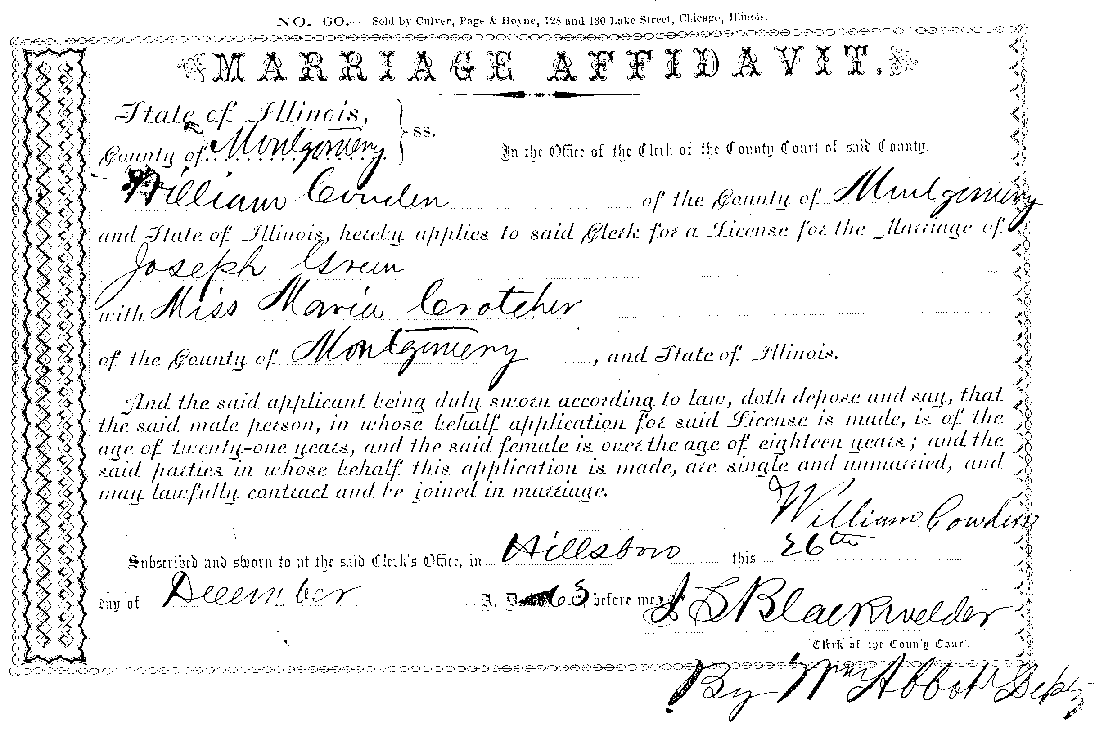 NO. 60.— Sold by Culver, Page & Hoyne, 128 and 130 Lake Street, Chicago, Illinois.
MARRIAGE AFFIDAVIT.
State of Illinois,
County of Montgomery } ss.
In the Office of the Clerk of the County Court of said County.
William Cowden of the County of Montgomery
and State of Illinois, hereby applies to said Clerk for a License for the Marriage of
Joseph Green
with Miss Maria Crotcher
of the County of Montgomery, and State of Illinois.
And the said applicant being duly sworn according to law, doth depose and say, that
the said male person, in whose behalf application for said License is made, is of the
age of twenty-one years, and the said female is over the age of eighteen years; and the
said parties in whose behalf this application is made, are single and unmarried, and
may lawfully contract and be joined in marriage.
William Cowden
Subscribed and sworn to at the said Clerk's Office, in Hillsboro this 26th
day of December A. D. before me
J S Blackwelder
Clerk of the County Court.
By Wm Abbott Depty